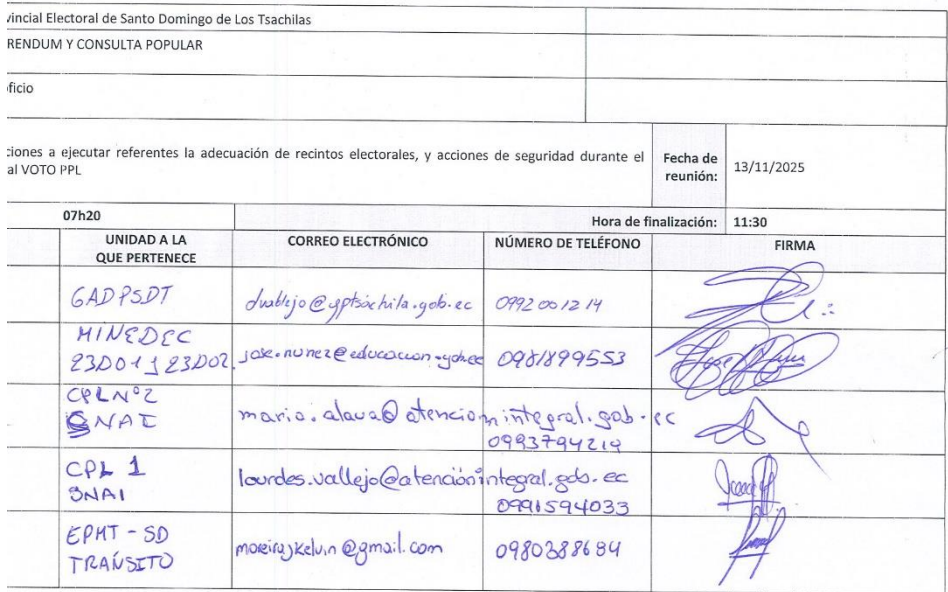 vincial Electoral de Santo Domingo de Los Tsachilas
RENDUM Y CONSULTA POPULAR
oficio
ciones a ejecutar referentes la adecuación de recintos electorales, y acciones de seguridad durante el
al VOTO PPL
Fecha de
reunión:
13/11/2025
07h20
Hora de finalización:
11:30
UNIDAD A LA
QUE PERTENECE
CORREO ELECTRÓNICO
NÚMERO DE TELÉFONO
FIRMA
GADPSDT
0992001214
MINEDEC
23D01 y 23D02.
jose.nunez@educacion.gob.ec
0981899553
CPL N°2
SNAI
maria.alava@atencionintegral.gob.ec
0993794214
CPL 1
SNAI
lourdes.vallejo@atenciónintegral.gob.ec
0991594033
EPMT-SD
TRÁNSITO
moreirajkelvin@gmail.com
0980388684